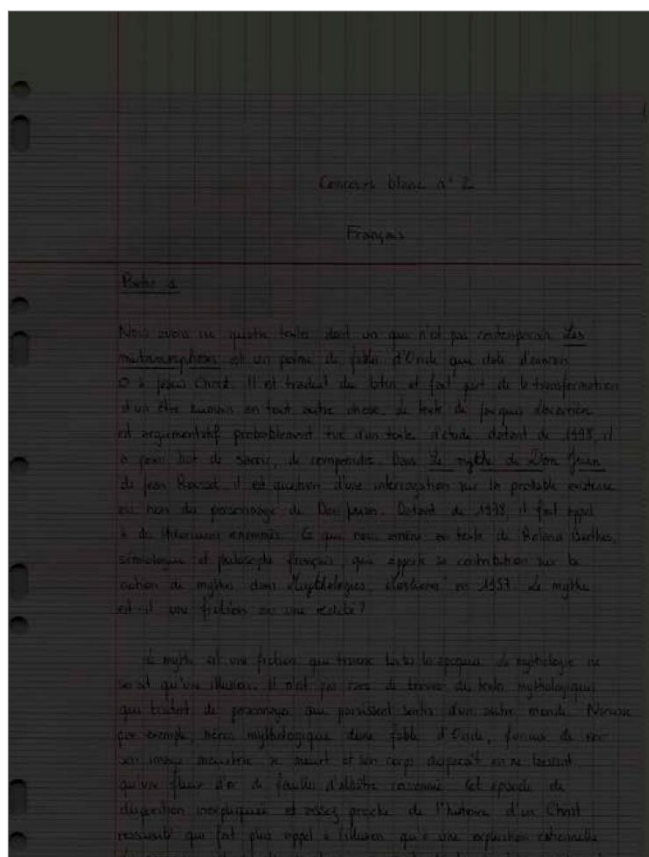 Concours blanc n° 2
Français
Partie 1
Nous avons ici quatre textes dont un qui n'est pas contemporain. Les
métamorphoses est un poème de fable d'Ovide qui date d'environ
0 à Jésus Christ. Il est traduit du latin et fait part de la transformation
d'un être humain en tout autre chose. Le texte de Jacques
est argumentatif probablement tiré d'un texte d'étude datant de 1998, il
a pour but de savoir, de comprendre. Dans Le mythe de Don Juan
de Jean Rousset, il est question d'une interrogation sur la probable existence
ou non du personnage de Don Juan. Datant de 1978, il fait appel
à du Ce qui nous amène au texte de Roland Barthes,
sémiologue et philosophe français, qui apporte sa contribution sur la
notion de mythes dans Mythologies, en 1957. Le mythe
est-il une fiction ou une réalité ?
Le mythe est une fiction qui traverse toutes les époques. La mythologie ne
serait qu'une illusion. Il n'est pas rare de trouver des textes mythologiques
qui traitent de personnages qui paraissent sortis d'un autre monde. Narcisse
par exemple, héros mythologique d'une fable d'Ovide, de son
se meurt et son corps disparaît en ne laissant
qu'une fleur d'or de feuilles d'albâtre Cet épisode de
disparition inexpliquée est assez proche de l'histoire d'un Christ
ressuscité qui fait plus appel à l'illusion qu'à une explication rationnelle